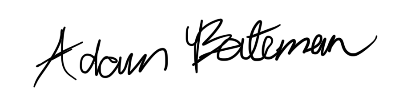 Adam Bateman